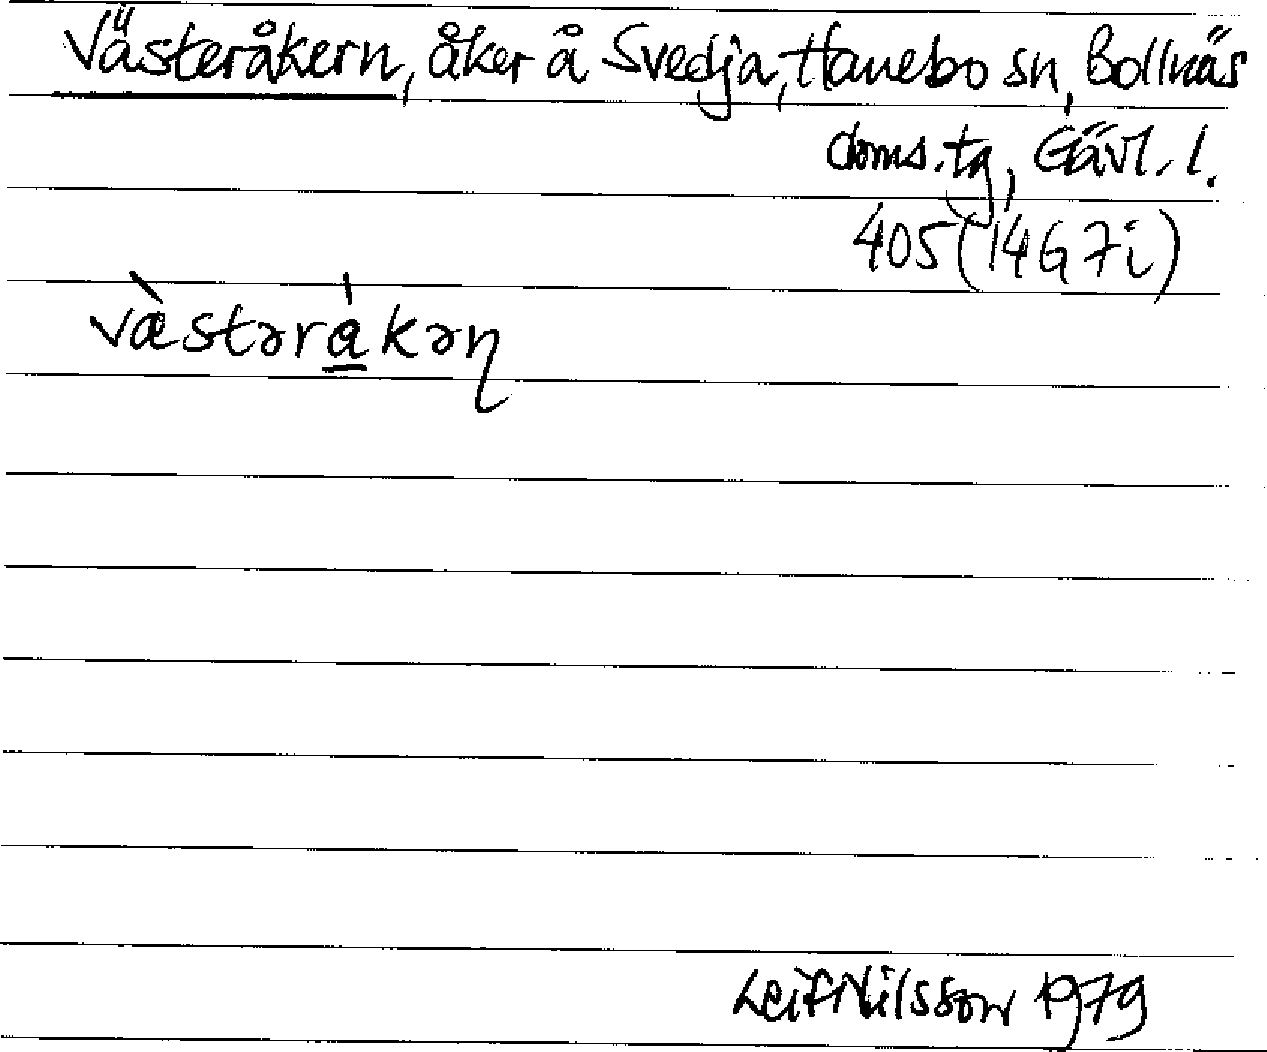 Västeråkern, åker å Svedja, Hanebo sn, Bollnäs
doms.tg, Gävl. l.
405 (14G 7i)
væ̀stərá̱kəɳ
Leif Nilsson 1979